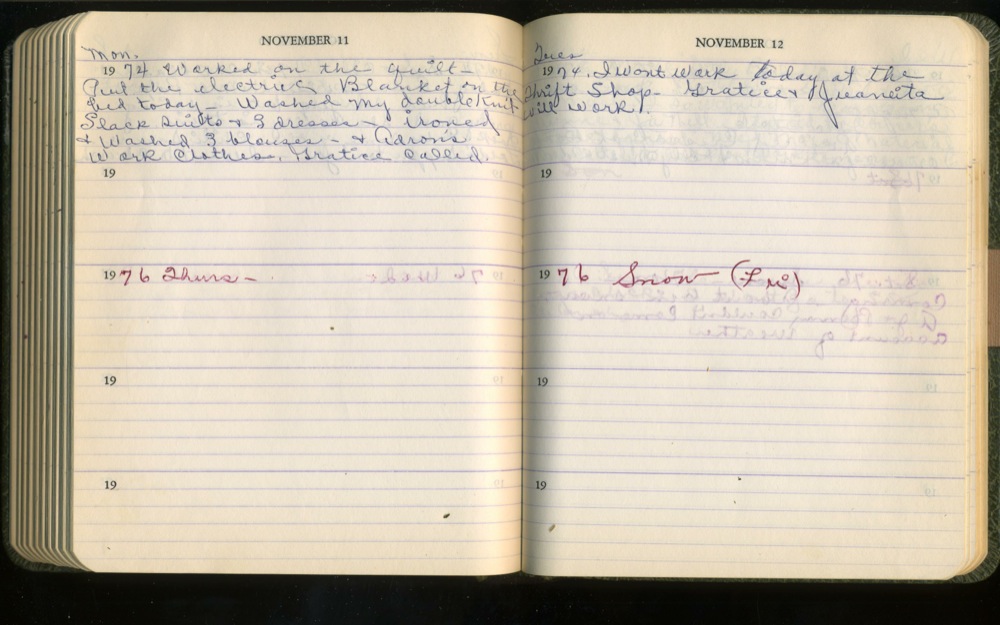 NOVEMBER 11
Mon.
1974 Worked on the quilt -
Put the electric Blanket on the
bed today - Washed my double Knit
Slack suits & 3 dresses - ironed
& Washed 3 blouses - & Adron's
Work Clothes. Gratice Called.
19
1976 Thurs -
19
19
NOVEMBER 12
Tues
1974. I wont work today at the
Thrift Shop - Gratice & Juanita
will work.
19
1976 Snow (Fri)
19
19